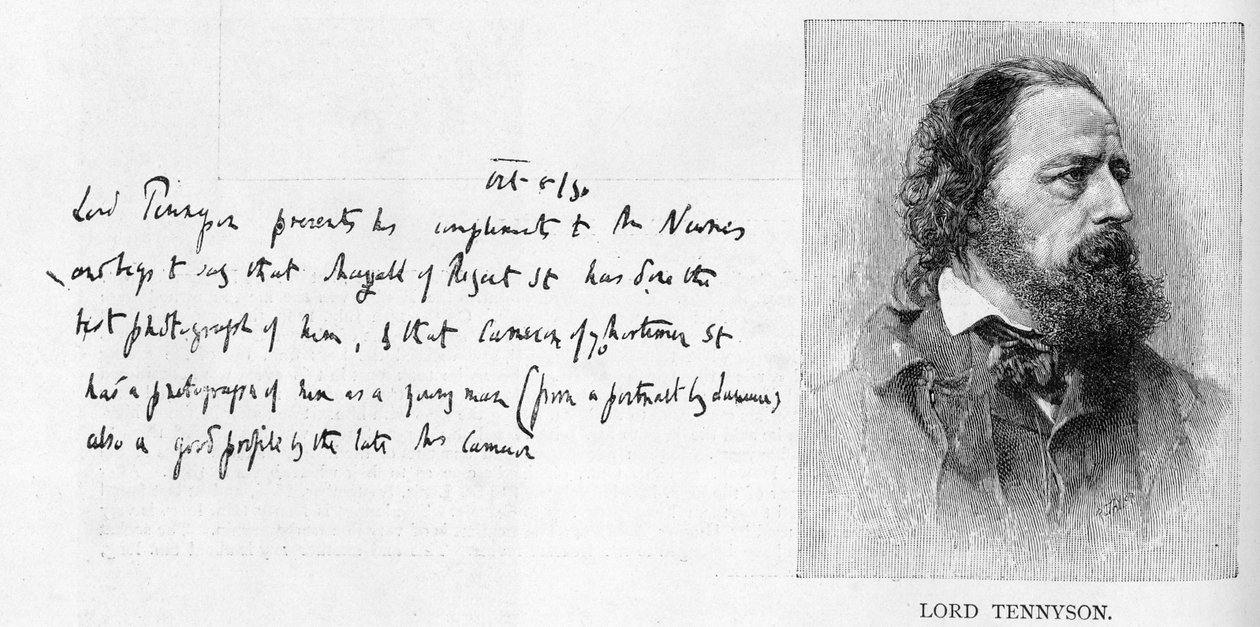 Oct 8/90
Lord Tennyson presents his compliments to Mr Newnes
and begs to say that Mayall of Regent St has done the
best photograph of him, & that Cameron of 70 Mortimer St
has a photograph of him as a young man (from a portrait by
also a good profile by the late Mrs Cameron
LORD TENNYSON.